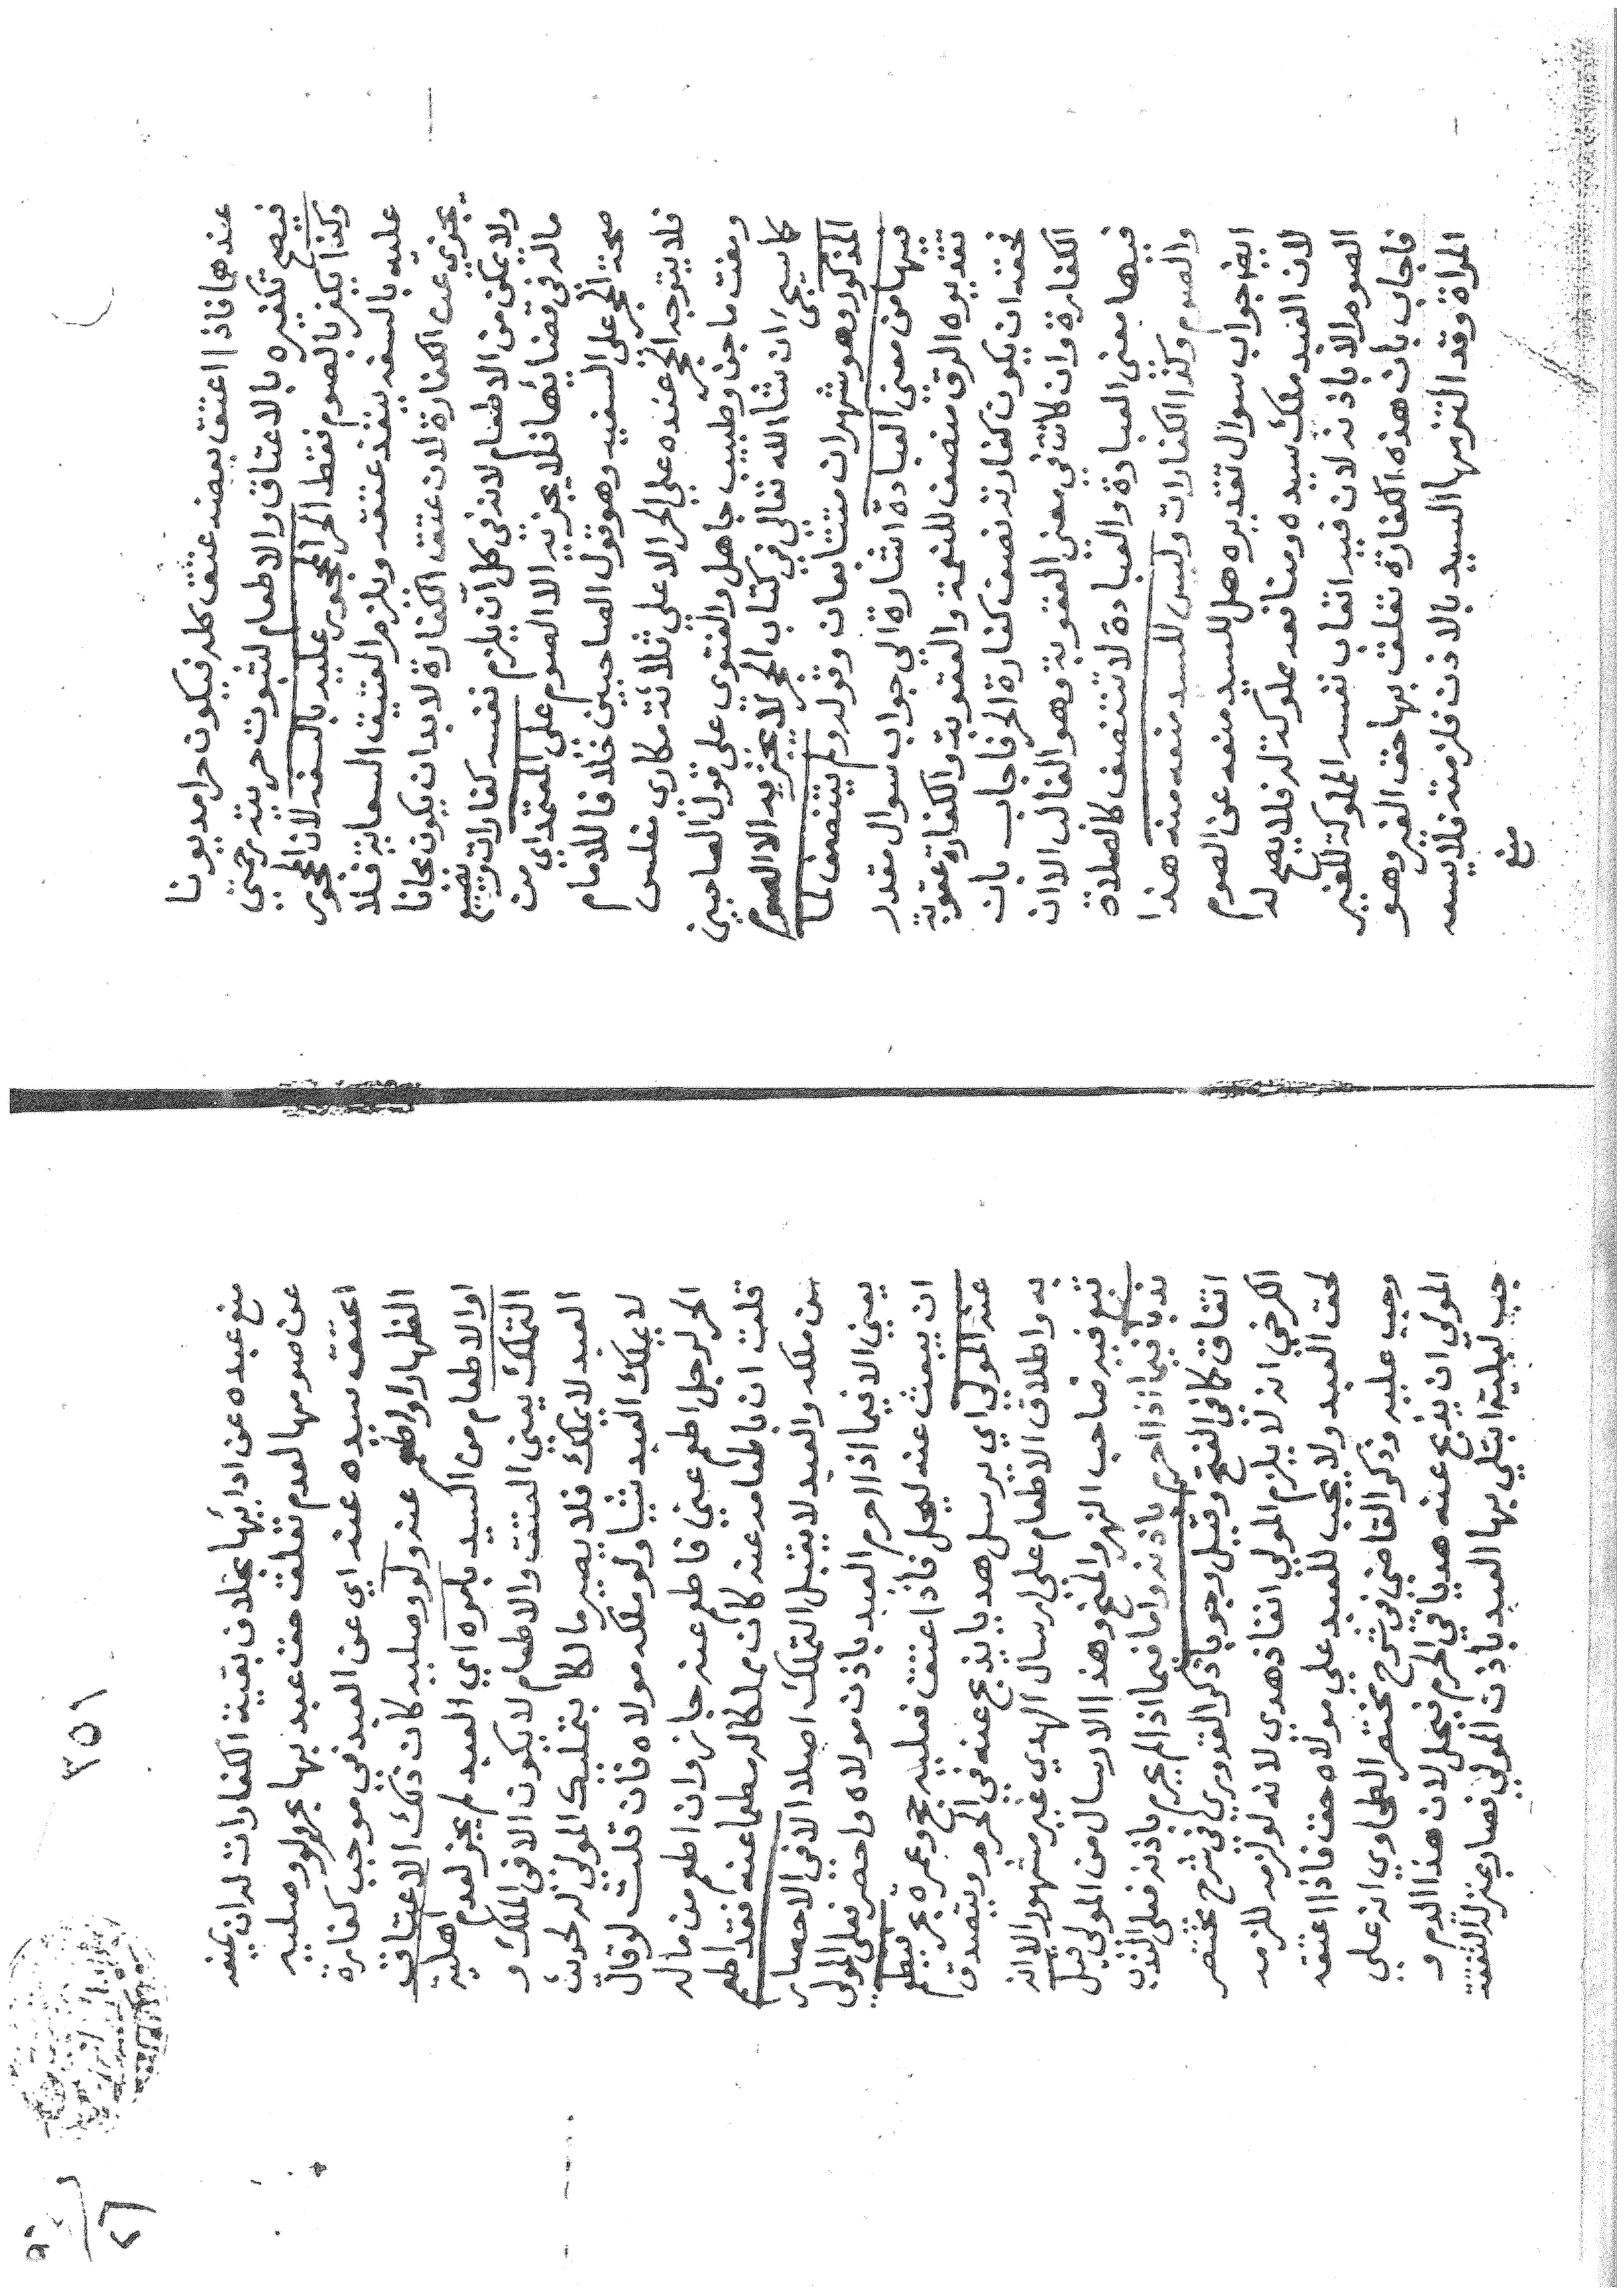 عندهما فاذا اعتق بعضه عتق كله فيكون حرا مديونا
فيصح تكفيره بالاعتاق والاطعام لثبوت حريته حتى
وكذا يكفر بالصوم فقط الحر المحجور عليه بالسفه لان المحجور
عليه بالسفه ينفذ عتقه ويلزم العتيق السعاية فلا
يجزي عن الكفارة لان عتق الكفارة لا بد ان يكون مجانا
ولا يمكن من الاطعام لانه في كل آن يلزم نفسه كفارات ويضيع
ماله في قضائها فلا يجزيه الا الصوم على المعتمد اي من
صحة الحجر على السفيه وهو قول الصاحبين خلافا للامام
فلا يتوجه الحجر عنده على الحر الا على ثلاثة مكاري مفلس
ومفت ماجن وطبيب جاهل والفتوى على قول الصاحبين
كما سيجئ ان شاالله تعالى في كتاب الحجر لا يجزيه الا الصوم
المذكور وهو شهران متتابعان وقوله ولم يتنصف لما
فيها من معنى العبادة اشارة الى جواب سوال مقدر
تقديره الرق منصف للنعمة والعقوبة والكفارة عقوبة
فحقه ان يكون كفارته نصف كفارة الحر فاجاب بان
الكفارة وان كانت في معنى العقوبة وهو الغالب الا ان
فيها معنى العبادة والعبادة لا تتنصف كالصلاة
والصوم وكذا الكفارات وليس للسيد منعه منه هذا
ايضا جواب سوال تقديره هل للسيد منعه عن الصوم
لان العبد ملك سيده ومنافعه مملوكة له فلا يصح له
الصوم الا باذنه لان فيه اتعاب نفسه المملوكة للغير
فاجاب بان هذه الكفارة تعلق بها حق الغير وهو
المراة وقد التزمها السيد بالاذن فلزمته فلا يسعه
منع
٣٥١
منع عبده عن ادائها بخلاف بقية الكفارات له ان يمنعه
عن صومها لعدم تعلق حق عبد بها بحر ولو وصليه
اعتق سيده عنه اي عن العبد في موجب كفارة
الظهار او اطعم عنه ولو وصليه كان ذلك الاعتاق
او الاطعام من السيد بامره اي العبد لم يجز لعدم اهلية
التملك يعني العتق والاطعام لا يكون الا في الملك و
العبد لا يملك فلا يصير مالكا بتمليك المولى له لحديث
لا يملك العبد شيا ولو ملكه مولاه فان قلت لو قال
الحر لرجل اطعم عني فاطعم عنه جاز وان اطعم من ماله
قلت ان باطعامه عنه كان مملكا له مطعما عنه فقد اطعم
من ملكه والعبد لا يقبل التملك اصلا الا في الاحصار
يعني الا فيما اذا احرم العبد باذن مولاه واحصر فعلى المولى
ان يبعث عنه ليحل فاذا عتق فعليه حج وعمرة بحر فيطعم
عنه المولى اي يرسل هديا يذبح عنه في الحرم ويتصدق
به واطلاق الاطعام على ارسال الهدي غير مشهور الا انه
تبع فيه صاحب النهر والمنح وهذا الارسال من المولى قيل
ندبا فيما اذا احرم باذنه واما فيما اذا لم يحرم باذنه فعلى الندب
اتفاق كما في الفتح وقيل وجوبا ذكر القدوري في شرح مختصر
الكرخي انه لا يلزم المولى انفاذ هدي لانه لو لزمه للزمه
لحق العبد ولا يجب للعبد على مولاه حق فاذا اعتقه
وجب عليه وذكر القاضي في شرح مختصر الطحاوي انه على
المولى ان يذبح عنه هديا في الحرم فيحل لان هذا الدم و
جب لبلية ابتلي بها العبد باذن المولى فصار بمنزلة النفقة